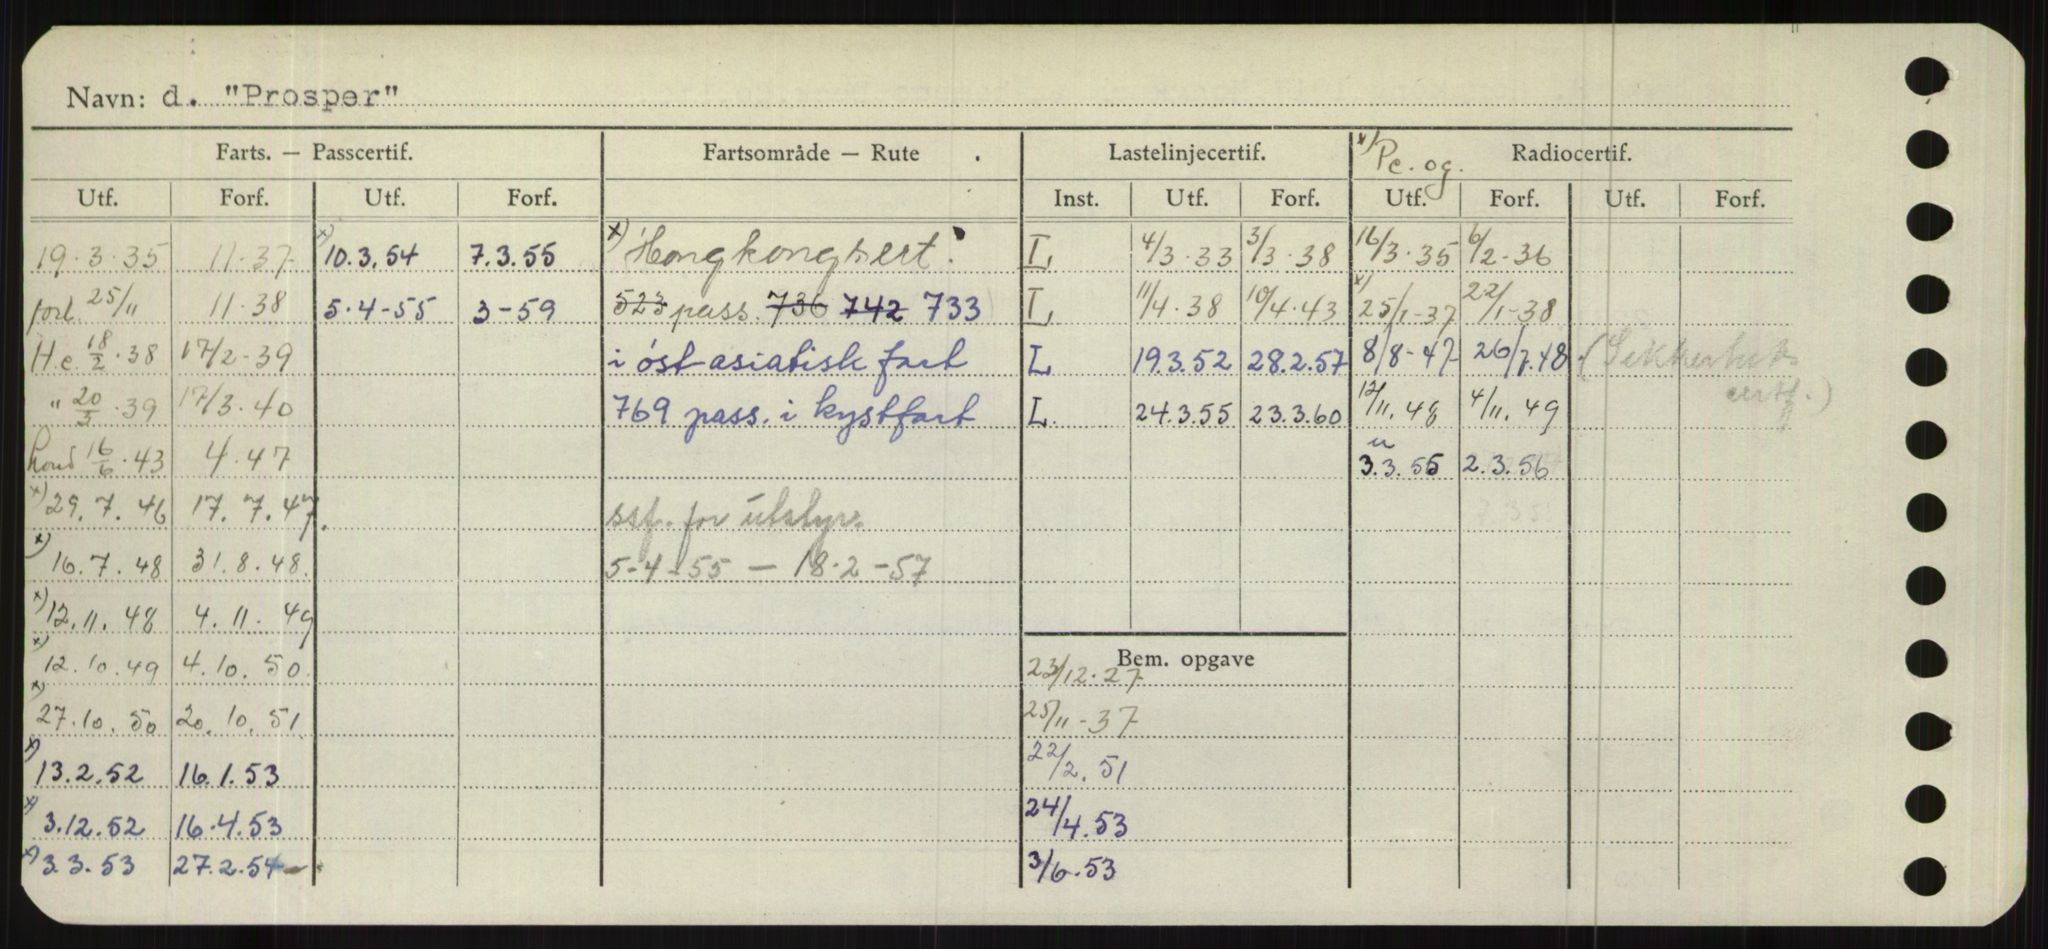 Navn: d. "Prosper"
Farts. — Passcertif. Fartsområde — Rute Lastelinjecertif. x) Pc. og. Radiocertif.
Utf. Forf. Utf. Forf. Inst. Utf. Forf. Utf. Forf. Utf. Forf.
19.3.35 11.37 x) 10.3.54 7.3.55 x) Hongkongsert. L 4/3.33 3/3.38 16/3.35 6/2-36
forl. 25/11 11.38 5.4-55 3-59 523 pass. 736 742 733 L 11/4.38 10/4.43 x) 25/1-37 22/1-38
H.c. 18/2.38 17/2-39 i óst-asiatisk fart L 19.3.52 28.2.57 8/8-47 26/7.48 (Sikkerhets
" 20/3.39 17/3.40 769 pass. i kystfart L. 24.3.55 23.3.60 12/11.48 4/11.49 certf.)
16/6.43 4.47 " 3.3.55 2.3.56
x) 29.7.46 17.7.47. ssf. for utstyr.
x) 16.7.48 31.8.48. 5-4-55 — 18.2-57
x) 12.11.48 4.11.49
x) 12.10.49 4.10.50. Bem. opgave
23/12.27
x) 27.10.50 20.10.51 25/11-37
x) 13.2.52 16.1.53 22/2.51
x) 3.12.52 16.4.53 24/4.53
x) 3.3.53 27.2.54 3/6.53